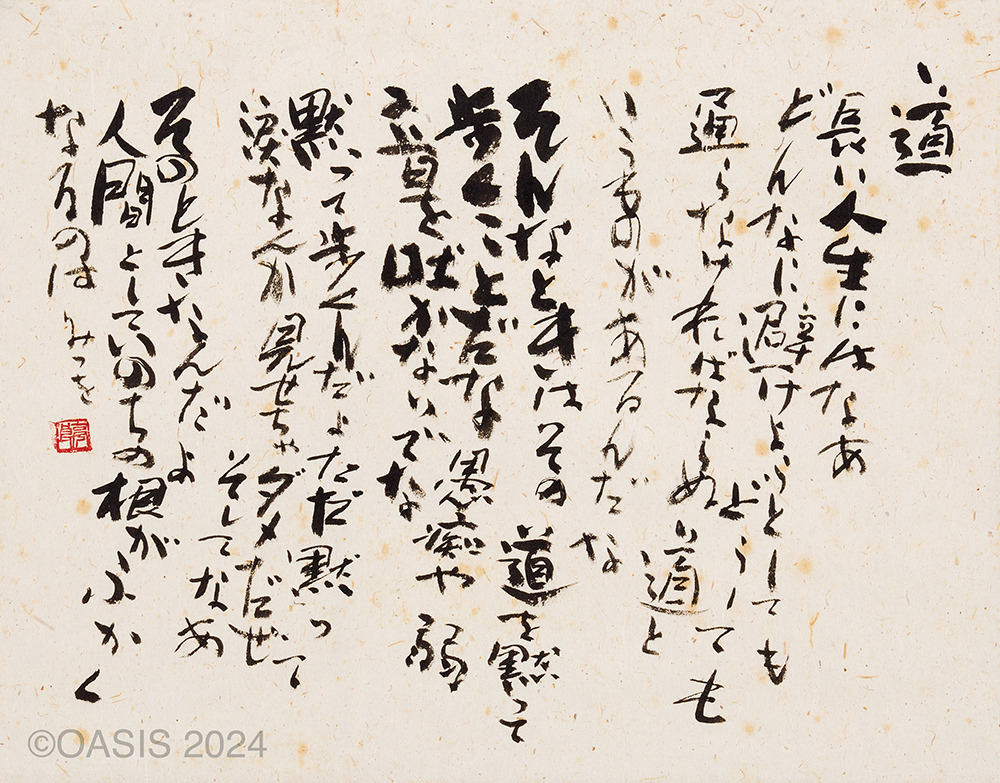 道
長い人生にはなあ
どんなに避けようとしても
どうしても
通らなければならぬ道と
いうものがあるんだな
そんなときはその道を黙って
歩くことだな 愚痴や弱
音を吐かないでな
黙って歩くんだよ ただ黙って
涙なんか見せちゃダメだぜ
そしてなあ
そのときなんだよ
人間としていのちの根が
ふかく
なるのは みつを
©OASIS 2024